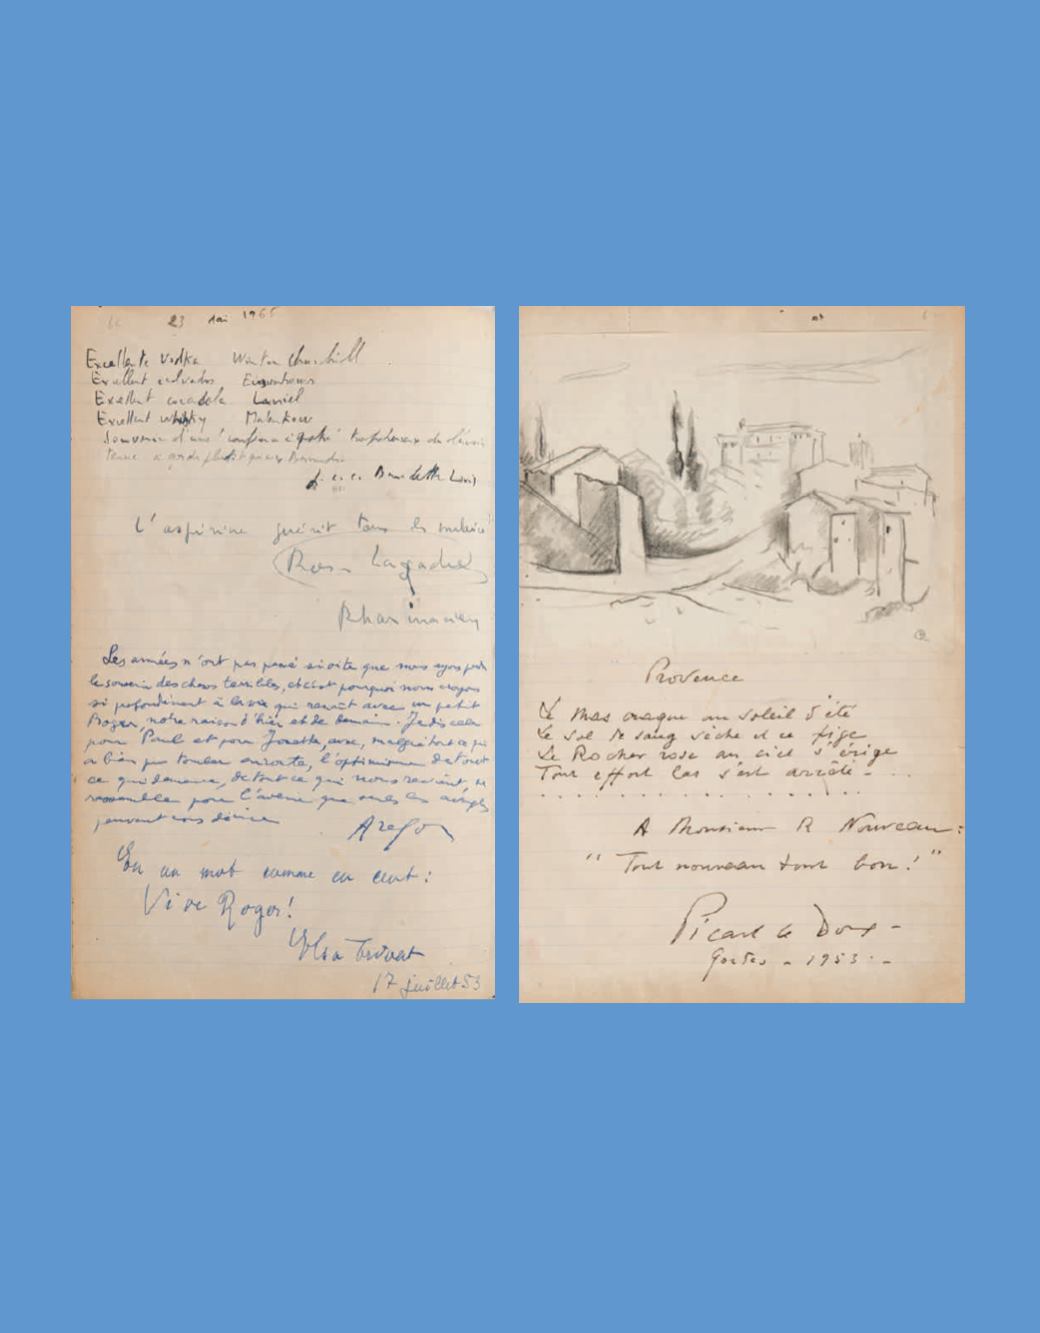 23 mai 1965
Excellente Vodka Winston Churchill
Exellent calvados Eisenhower
Exellent cocacola Laniel
Exellent whisky Malenkow
Souvenir d'une
L'aspirine guérit tous les
Les armées n'ont pas passé si vite que nous ayons perdu
le souvenir des choses terribles, et c'est pourquoi nous croyons
si profondément à la vie qui renaît avec un petit
Roger, notre raison d'hier et de demain. Je dis cela
pour Paul et pour Josette, avec, malgré tout ce qui
a bien pu tomber en route, l'optimisme de tout
ce qui demeure, de tout ce qui nous revient, se
rassemble pour l'avenir que seuls les aveugles
peuvent
Aragon
En un mot comme en cent :
Vive Roger!
Elsa Triolet
17 juillet 53
Provence
Le Mas craque au soleil d'été
Le sol de sang sèche et se fige
Le Rocher rose au ciel s'érige
Tout effort las s'est arrêté - . . .
A Monsieur R Nouveau :
" Tout nouveau tout bon ! "
Picart le Doux -
Gordes - 1953 . -